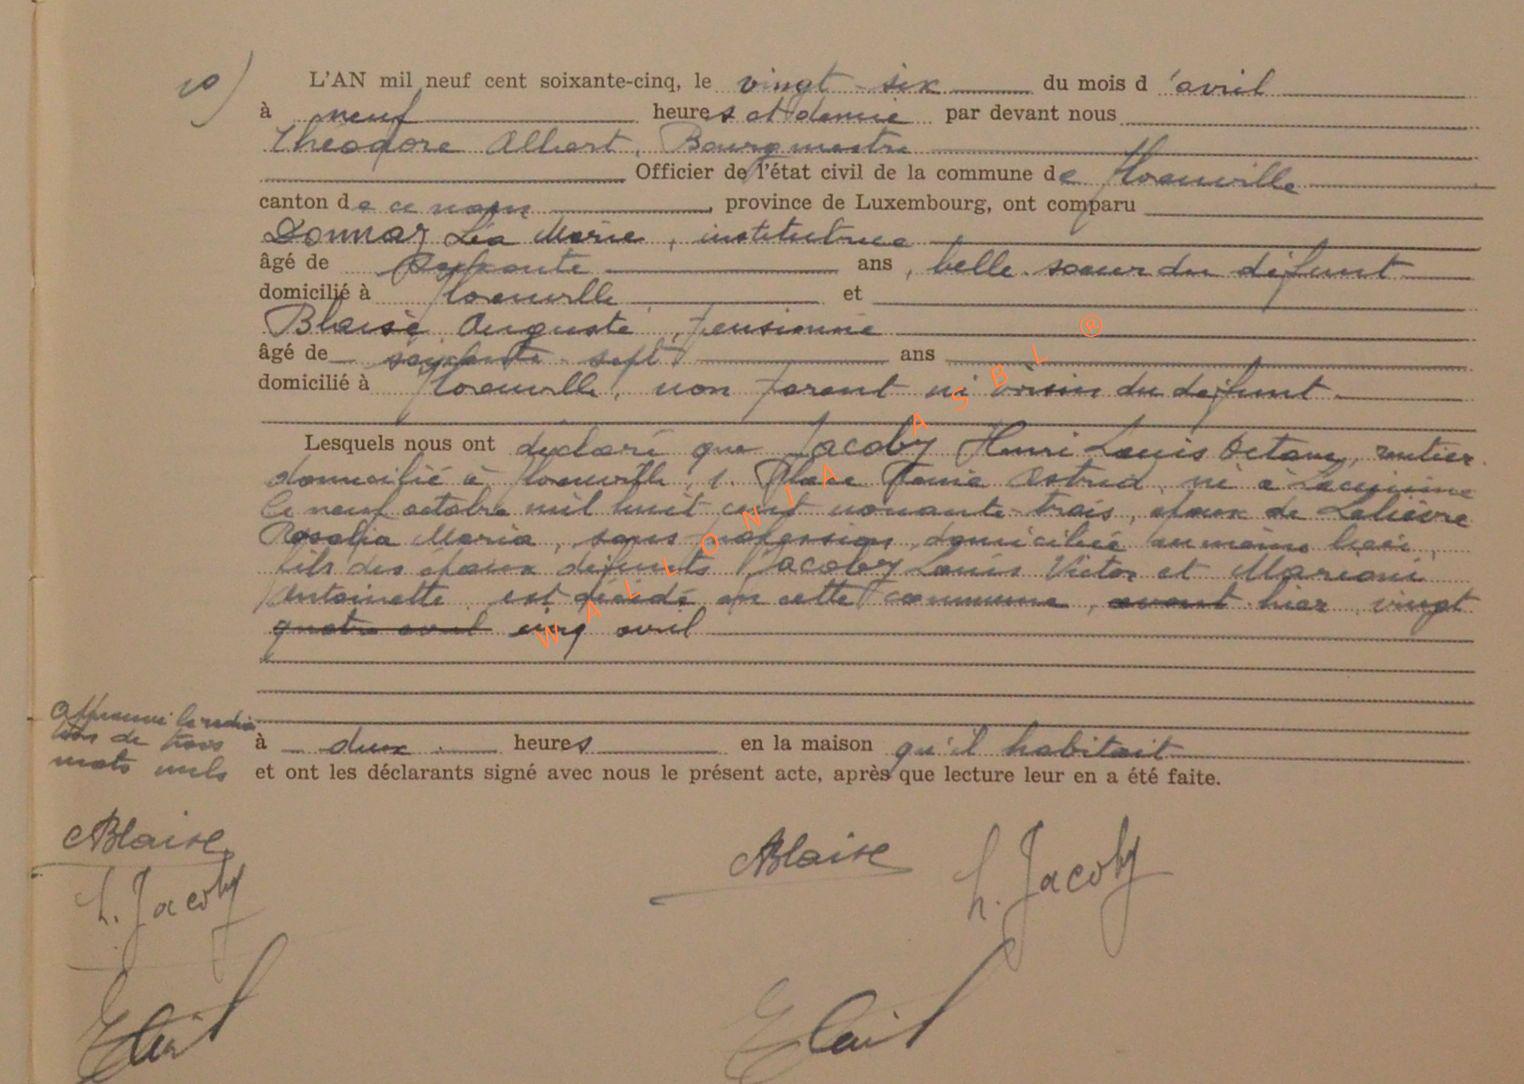 10)
L'AN mil neuf cent soixante-cinq, le vingt-six du mois d'avril
à neuf heures et demie par devant nous
Théodore Albert, Bourgmestre
Officier de l'état civil de la commune de Florenville
canton de ce nom, province de Luxembourg, ont comparu
Donnay Léa Marie, institutrice
âgé de soixante ans, belle-soeur du défunt
domicilié à Florenville et
Blaise Auguste, pensionné
âgé de soixante-sept ans
domicilié à Florenville, non parent ni voisin du défunt.
Lesquels nous ont déclaré que Jacoby Henri Louis Octave, rentier
domicilié à Florenville, 1. Place Reine Astrid, né à Lacuisine
le neuf octobre mil huit cent nonante-trois, époux de Lelièvre
Rosalia Maria, sans profession, domiciliée au même lieu,
fils des époux défunts Jacoby Louis Victor et Marioni
Antoinette, est décédé en cette commune, avant hier vingt
quatre avril cinq avril
Approuvé la radia
tion de trois
mots nuls
à deux heures en la maison qu'il habitait
et ont les déclarants signé avec nous le présent acte, après que lecture leur en a été faite.
ABlaise ABlaise L. Jacoby
L. Jacoby
WALLONIA ASBL ®